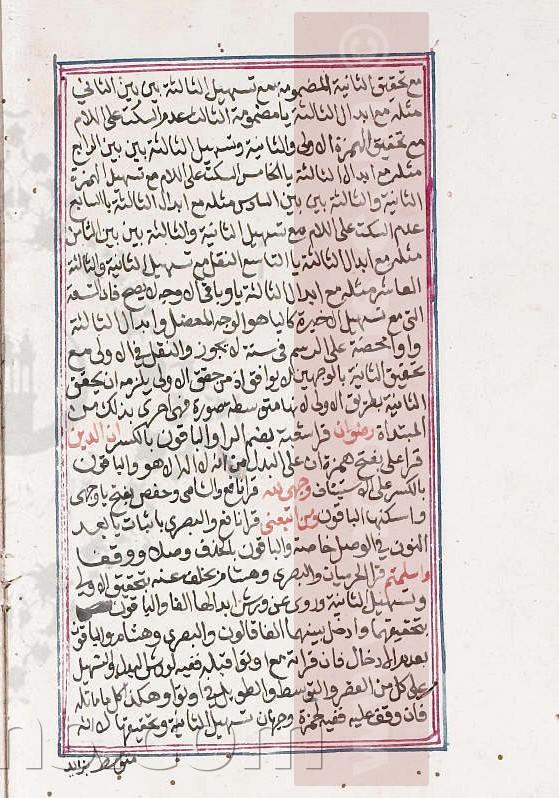 مع تحقيق الثانية المضمومة مع تسهيل الثالثة بين بين الثاني
مثله مع ابدال الثالثة يا مضمومة الثالث عدم السكت على اللام
مع تحقيق الهمزة الاولى والثانية وتسهيل الثالثة بين بين الرابع
مثله مع ابدال الثالثة يا الخامس السكت على اللام مع تسهيل الهمزة
الثانية والثالثة بين بين السادس مثله مع ابدال الثالثة يا السابع
عدم السكت على اللام مع تسهيل الثانية والثالثة بين بين الثامن
مثله مع ابدال الثالثة يا التاسع النقل مع تسهيل الثانية والثالثة
العاشر مثله مع ابدال الثالثة يا وباقي الاوجه لا يصح فان التسعة
التي مع تسهيل الاخيرة كاليا هو الوجه المعضل وابدال الثالثة
واوا محضة على الرسم في ستة لا يجوز والنقل في الاولى مع
تحقيق الثانية بالوجهين لا يوافق اذ من خفف الاولى يلزمه ان يخفف
الثانية بطريق الاولى لانها متوسطة صورة فهي احرى بذلك من
المبتداة رضوان قرا شعبة بضم الرا والباقون بالكسر ان الدين
قرا علي بفتح همزة ان على البدل من انه لا اله الا هو والباقون
بالكسر على الاستيناف وجهي لله قرا نافع والشامي وحفص بفتح يا وجهي
واسكنها الباقون ومن اتبعني قرا نافع والبصري باثبات يا بعد
النون في الوصل خاصة والباقون بالحذف وصلا ووقفا
واسلمتم قرا الحرميان والبصري وهشام بخلف عنه بتحقيق الاولى
وتسهيل الثانية وروي عن ورش ابدالها الفا والباقون
بتحقيقهما وادخل بينهما الفا قالون والبصري وهشام والباقون
بعدم الادخال فان قراته مع اوتوا قبله ففيه لورش البدل والتسهيل
على كل من القصر والتوسط والطويل في اوتوا وهكذا كل ما ماثله
فان وقف عليه ففيه لحمزة وجهان تسهيل الثانية وتحقيقها لانه
متوسط بزايد